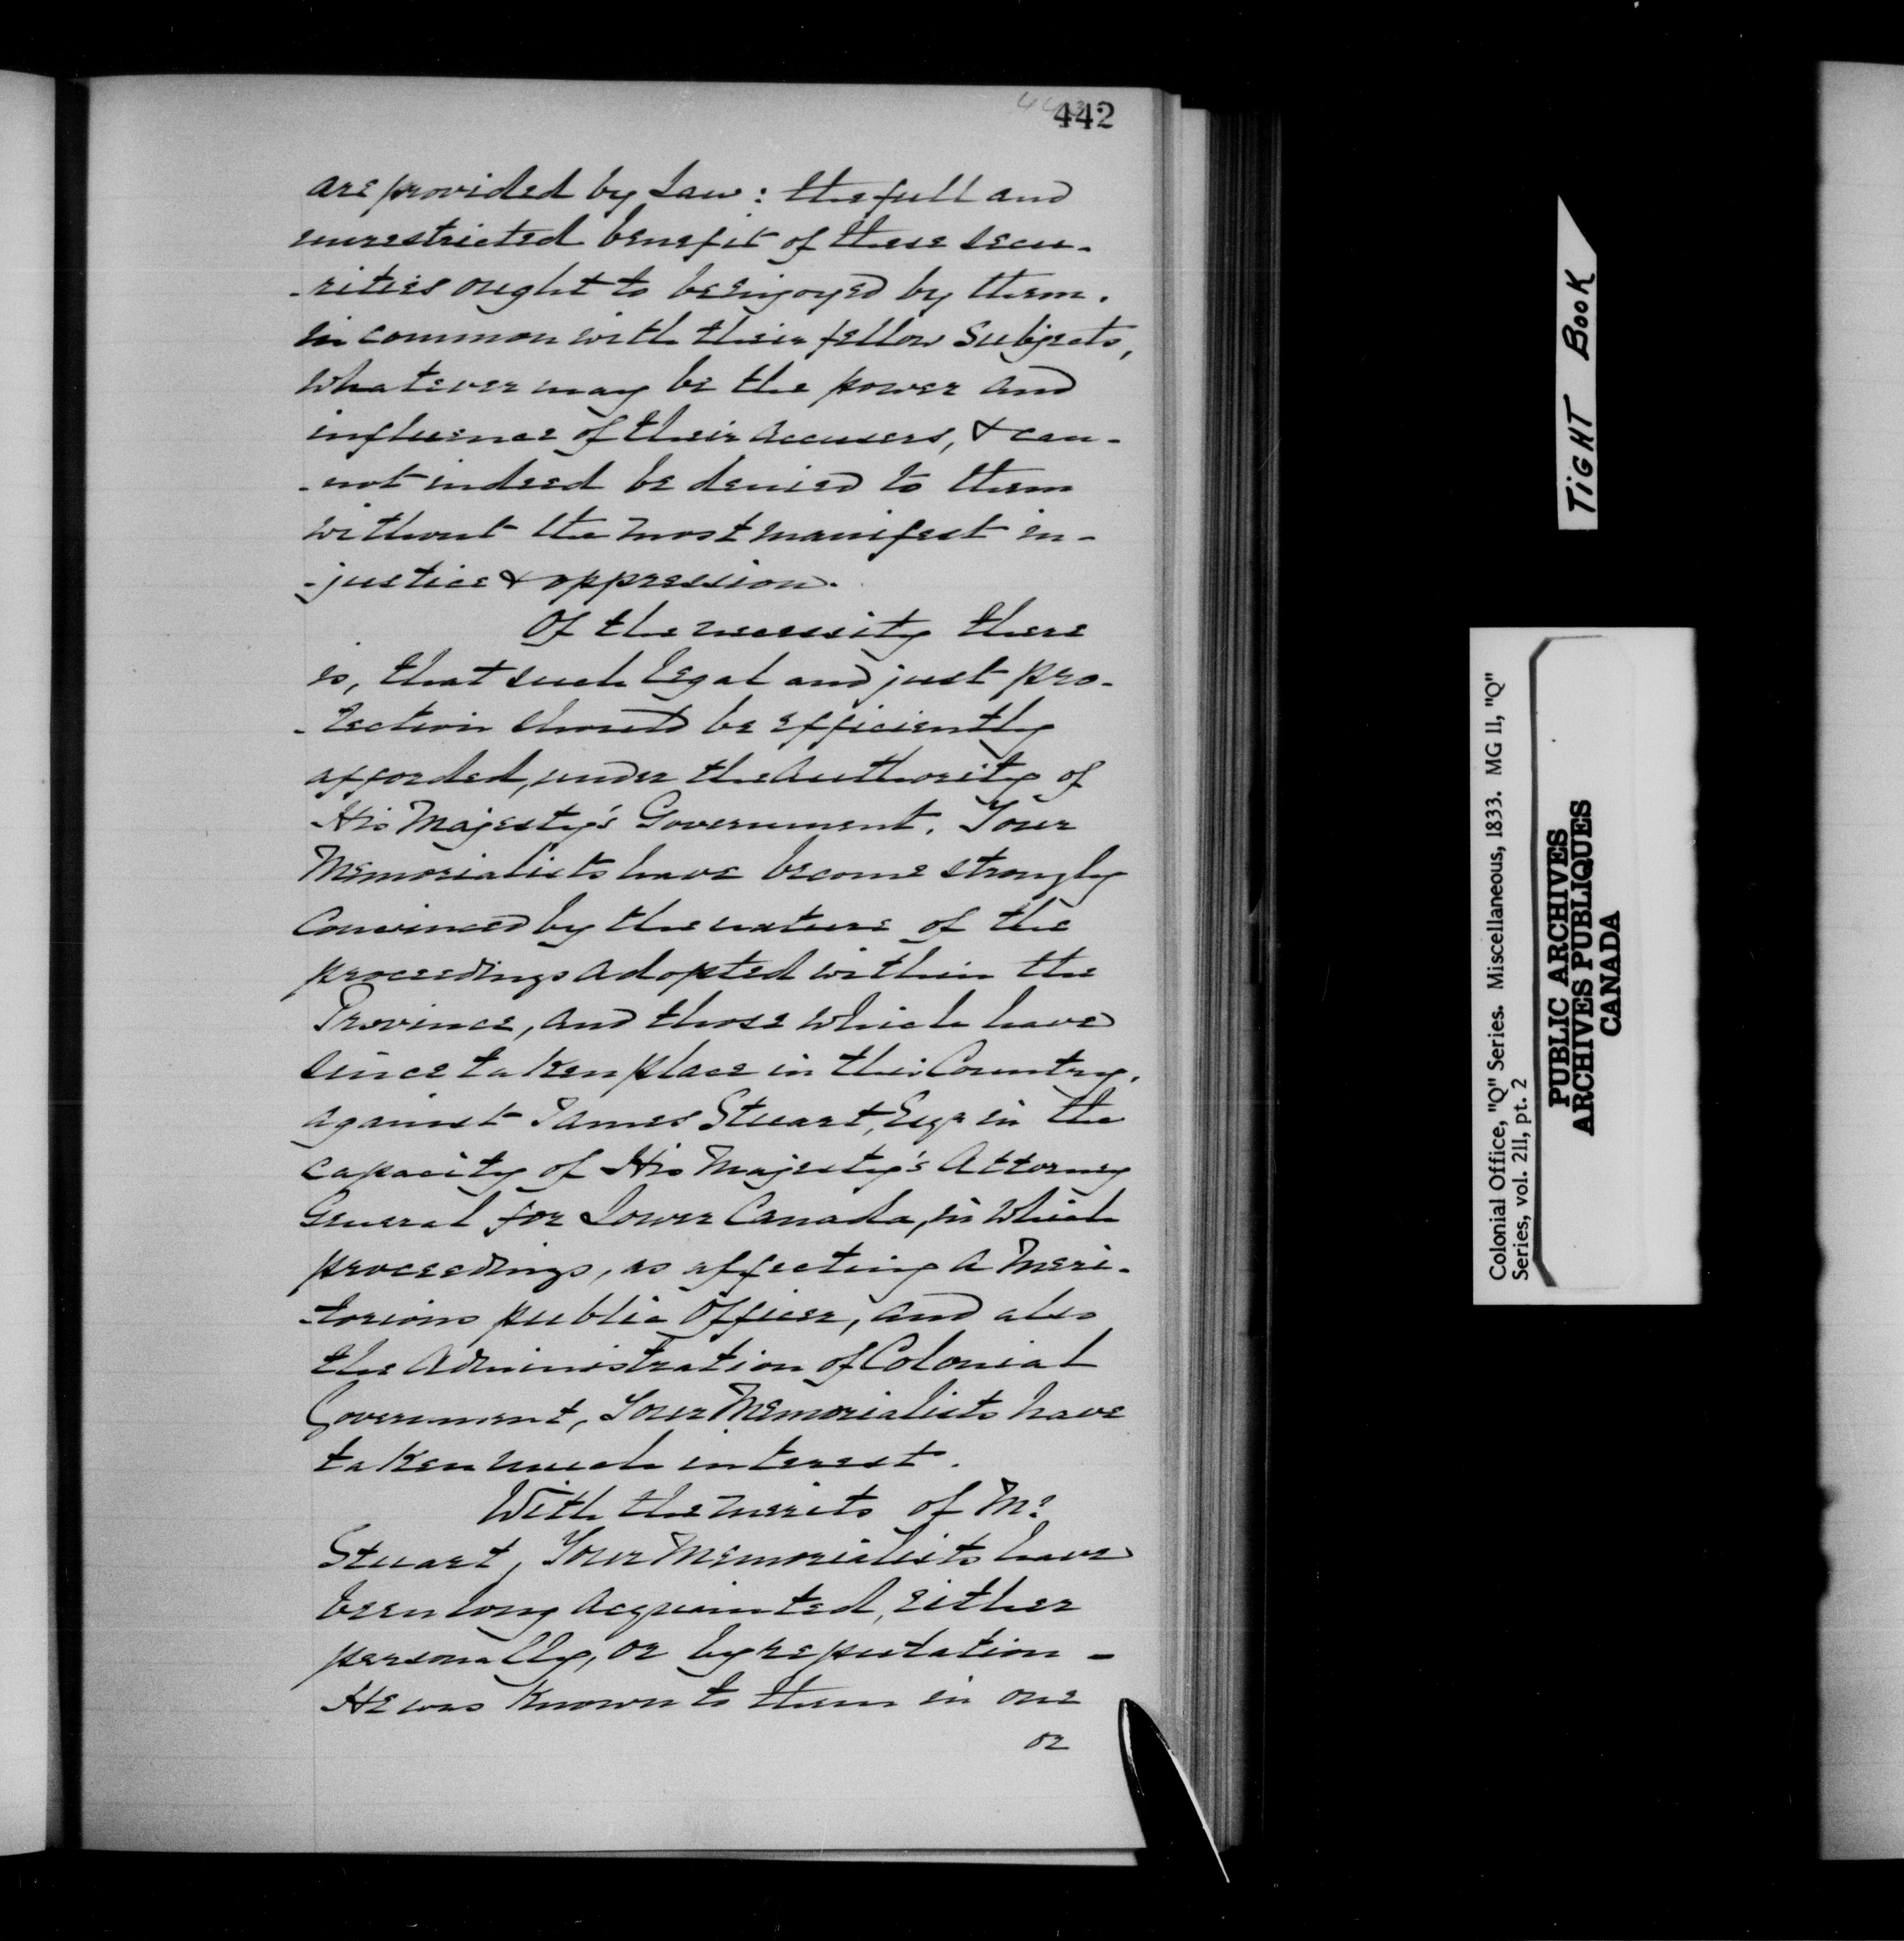 442
are provided by Law: the full and
unrestricted benefit of these secu-
-rities ought to be enjoyed by them.
in common with their fellow Subjects,
whatever may be the power and
influence of their accusers, & can-
-not indeed be denied to them
without the most manifest in-
-justice & oppression.
Of the necessity there
is, that such legal and just pro-
-tection should be efficiently
afforded, under the Authority of
His Majesty's Government. Your
Memorialists have become strongly
Convinced by the nature of the
proceedings adopted within the
Province, and those which have
since taken place in this Country,
against James Stuart, Esqr in the
capacity of His Majesty's Attorney
General for Lower Canada, in which
proceedings, as affecting a Meri-
-torious public Officer, and also
the Administration of Colonial
Government, Your Memorialists have
taken much interest.
With the merits of Mr.
Stuart, Your Memorialists have
been long acquainted, either
personally, or by reputation -
He was known to them in one
or
TIGHT BOOK
Colonial Office, "Q" Series. Miscellaneous, 1833. MG 11, "Q"
Series, vol. 211, pt. 2
PUBLIC ARCHIVES
ARCHIVES PUBLIQUES
CANADA